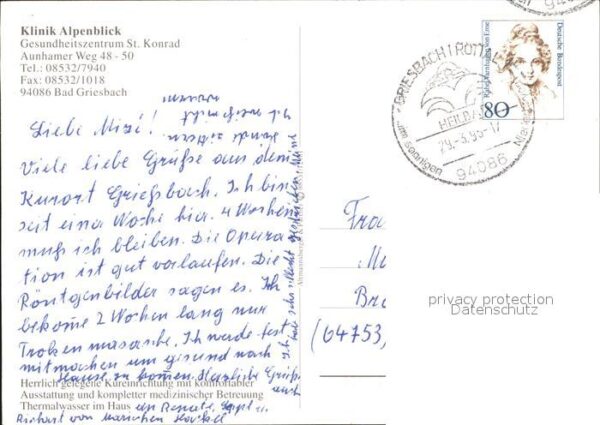 Klinik Alpenblick
Gesundheitszentrum St. Konrad
Aunhamer Weg 48 - 50
Tel.: 08532/7940
Fax: 08532/1018
94086 Bad Griesbach
Liebe Mizi!
Viele liebe Grüße aus dem
Kurort Grießbach. Ich bin
seit eine Woche hier. 4 Wochen
muß ich bleiben. Die Opera
tion ist gut verlaufen. Die
Röntgenbilder sagen es. Ich
bekome 2 Wochen lang nur
Troken masasche. Ich werde fest
mitmachen um gesund nach
Hause zu komen. Herzliche Grüße
auch
Herrlich gelegene Kureinrichtung mit komfortabler
Ausstattung und kompletter medizinischer Betreuung
Thermalwasser im Haus
an Renate,
von
GRIESBACH I ROTTAL
HEILBAD
29.-3.95-17
94086
im sonnigen
Deutsche Bundespost
80
Frau
Br
(64753,
privacy protection
Datenschutz
94086